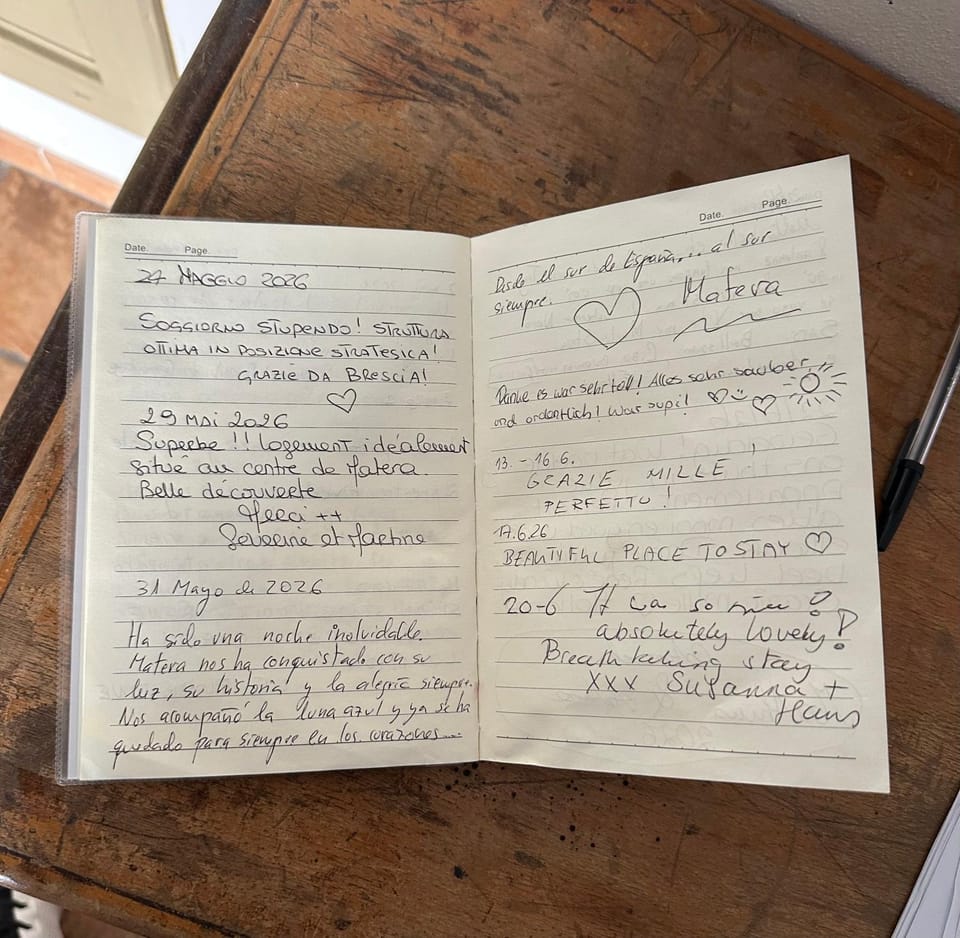 Date. Page.
27 MAGGIO 2026
SOGGIORNO STUPENDO! STRUTTURA
OTTIMA IN POSIZIONE STRATEGICA!
GRAZIE DA BRESCIA!
29 MAI 2026
Superbe !! Logement idéalement
situé au centre de Matera.
Belle découverte
Merci ++
Séverine et Martine
31 Mayo de 2026
Ha sido una noche inolvidable.
Matera nos ha conquistado con su
luz, su historia y la alegría siempre.
Nos acompañó la luna azul y ya se ha
quedado para siempre en los corazones....
Date. Page.
Desde el sur de España... al sur
siempre.
Matera
Danke es war sehr toll! Alles sehr sauber
und ordentlich! War supi!
13. - 16.6.
GRAZIE MILLE!
PERFETTO!
17.6.26
BEAUTYFUL PLACE TO STAY
20-6 It was so
absolutely lovely!
Breathtaking stay
XXX Susanna +
Hans